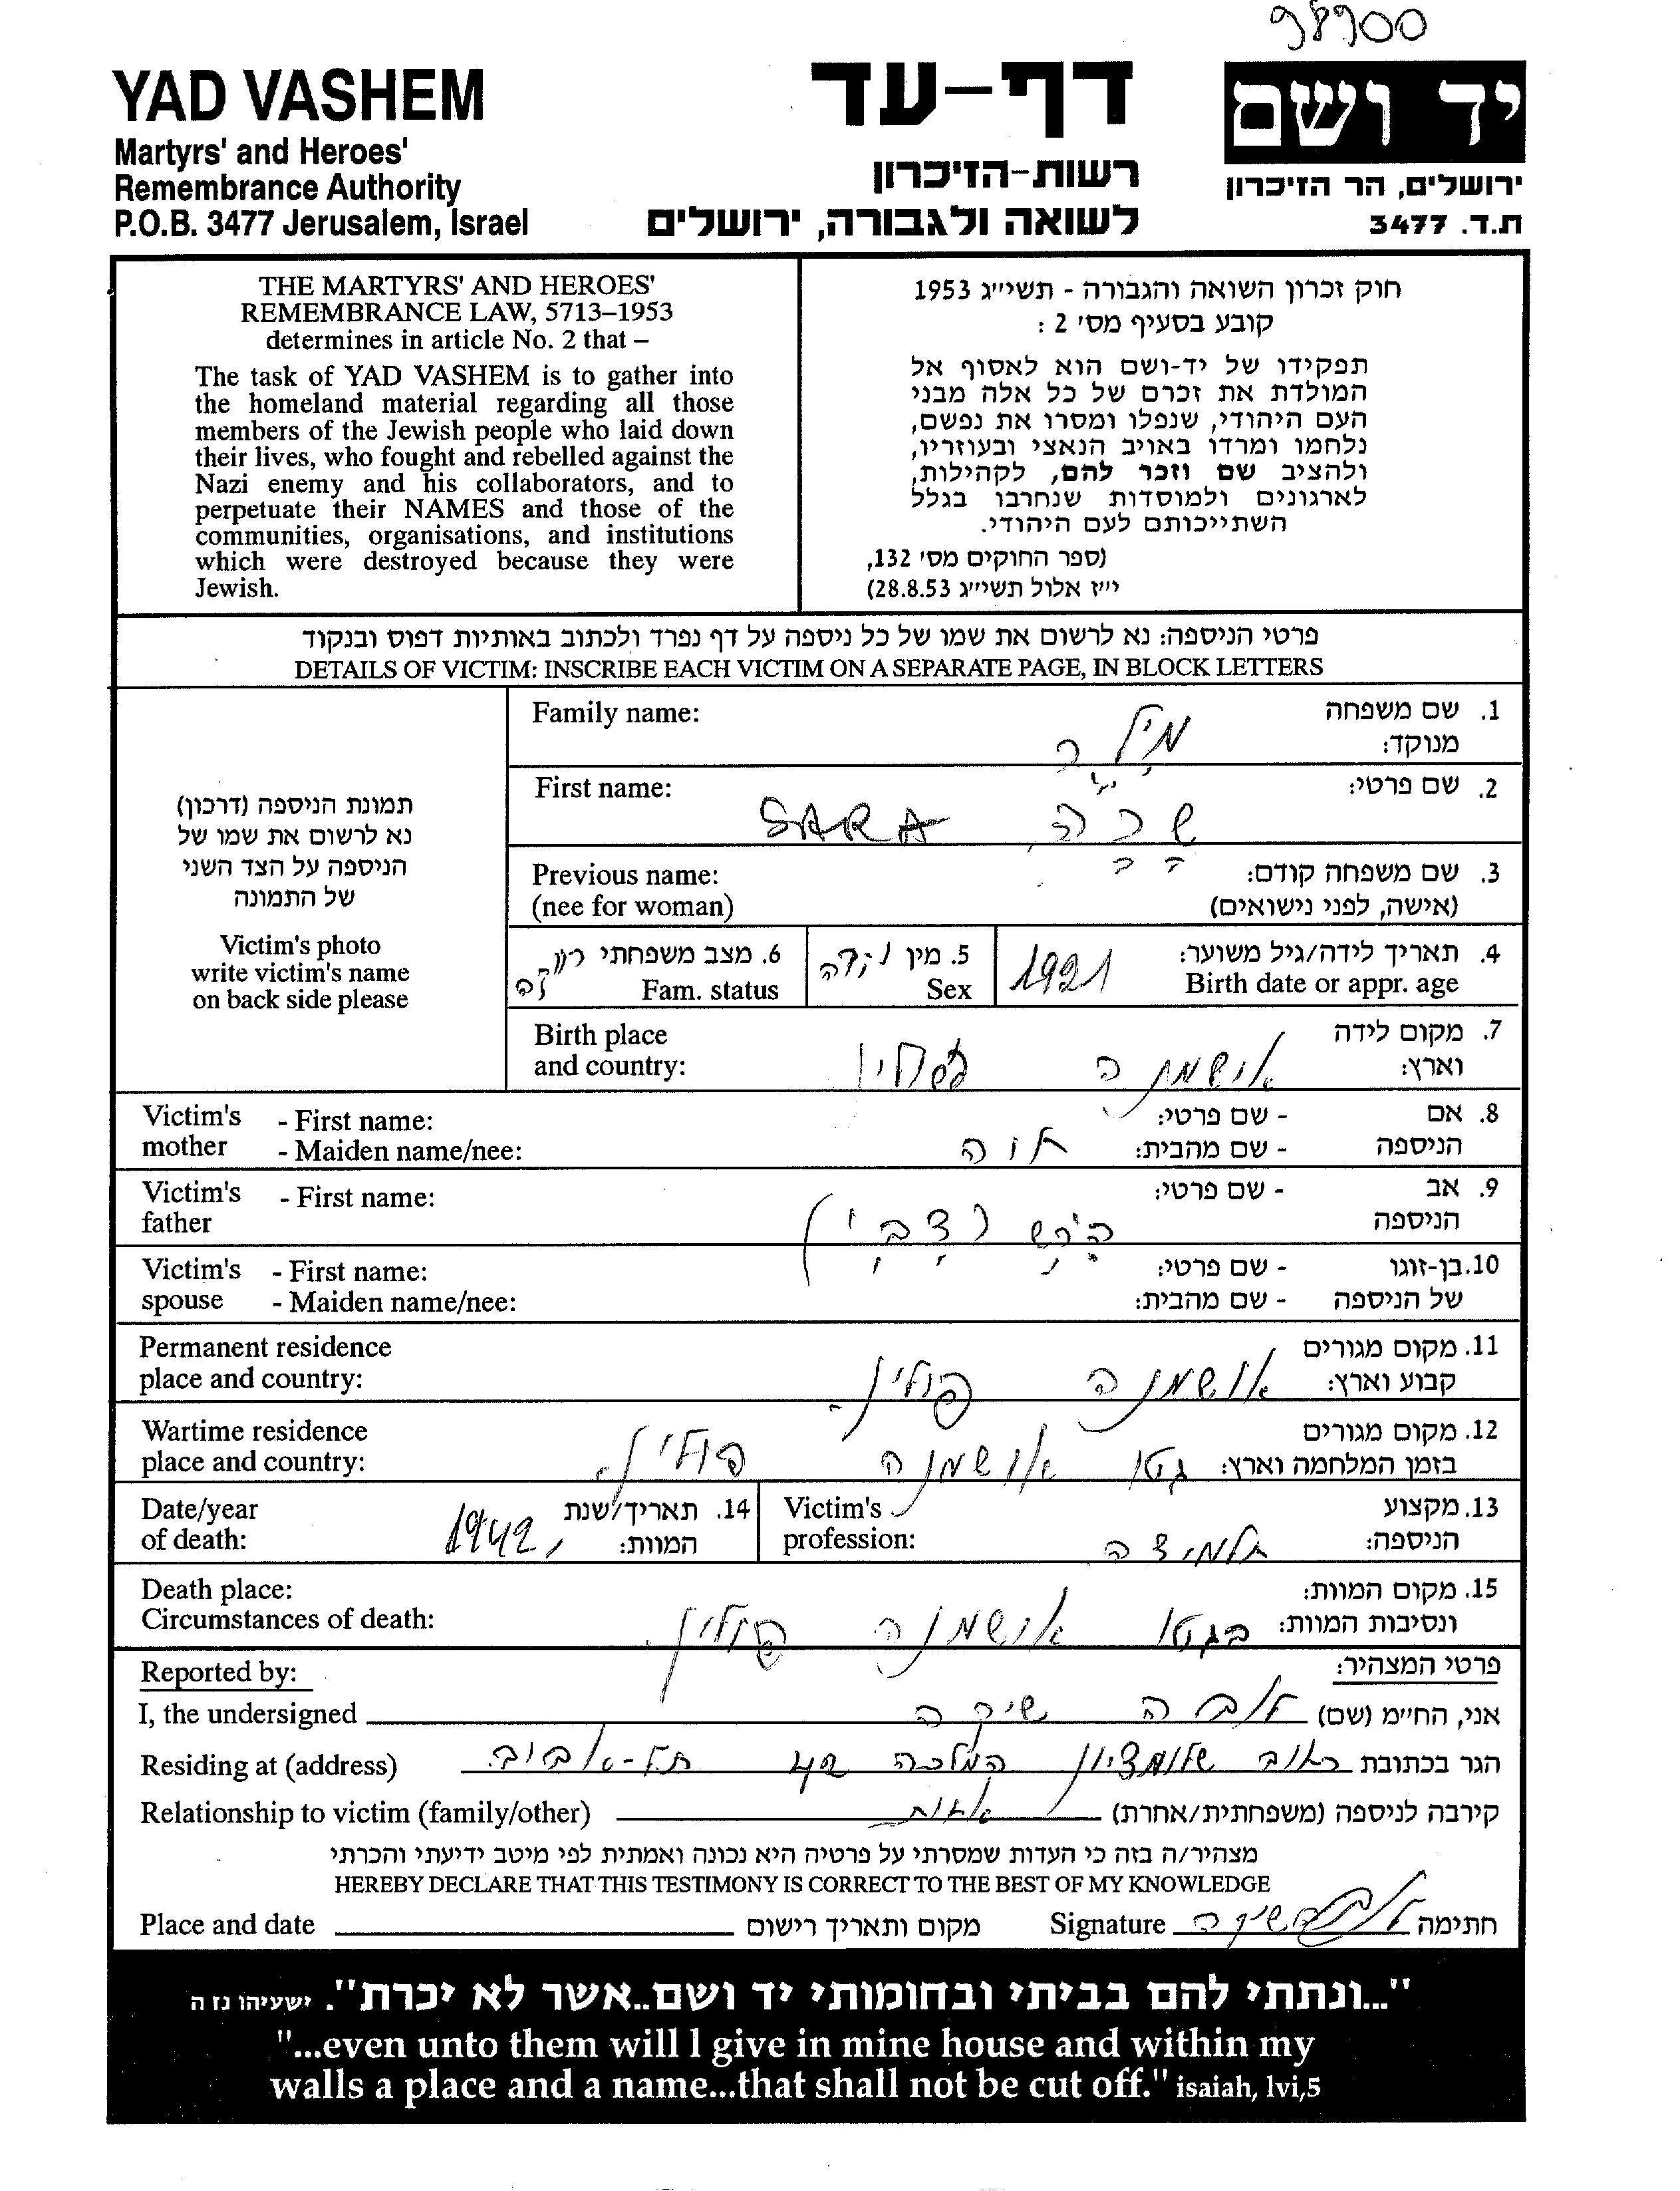 98900
YAD VASHEM
Martyrs' and Heroes'
Remembrance Authority
P.O.B. 3477 Jerusalem, Israel
דף-עד
רשות-הזיכרון
לשואה ולגבורה, ירושלים
יד ושם
ירושלים, הר הזיכרון
ת.ד. 3477
THE MARTYRS' AND HEROES'
REMEMBRANCE LAW, 5713–1953
determines in article No. 2 that –
The task of YAD VASHEM is to gather into
the homeland material regarding all those
members of the Jewish people who laid down
their lives, who fought and rebelled against the
Nazi enemy and his collaborators, and to
perpetuate their NAMES and those of the
communities, organisations, and institutions
which were destroyed because they were
Jewish.
חוק זכרון השואה והגבורה - תשי״ג 1953
קובע בסעיף מס׳ 2 :
תפקידו של יד-ושם הוא לאסוף אל
המולדת את זכרם של כל אלה מבני
העם היהודי, שנפלו ומסרו את נפשם,
נלחמו ומרדו באויב הנאצי ובעוזריו,
ולהציב שם וזכר להם, לקהילות,
לארגונים ולמוסדות שנחרבו בגלל
השתייכותם לעם היהודי.
(ספר החוקים מס׳ 132,
י״ז אלול תשי״ג 28.8.53)
פרטי הניספה: נא לרשום את שמו של כל ניספה על דף נפרד ולכתוב באותיות דפוס ובנקוד
DETAILS OF VICTIM: INSCRIBE EACH VICTIM ON A SEPARATE PAGE, IN BLOCK LETTERS
תמונת הניספה (דרכון)
נא לרשום את שמו של
הניספה על הצד השני
של התמונה
Victim's photo
write victim's name
on back side please
Family name: 1. שם משפחה
מנוקד:
First name: SARA שרה 2. שם פרטי:
Previous name: 3. שם משפחה קודם:
(nee for woman) (אישה, לפני נישואים)
4. תאריך לידה/גיל משוער: 1921 5. מין נקבה 6. מצב משפחתי רווקה
Birth date or appr. age Sex Fam. status
Birth place 7. מקום לידה
and country: אושמנה פולין וארץ:
Victim's - First name: - שם פרטי: 8. אם
mother - Maiden name/nee: חוה - שם מהבית: הניספה
Victim's - First name: - שם פרטי: 9. אב
father הירש (צבי) הניספה
Victim's - First name: - שם פרטי: 10. בן-זוגו
spouse - Maiden name/nee: - שם מהבית: של הניספה
Permanent residence 11. מקום מגורים
place and country: אושמנה פולין. קבוע וארץ:
Wartime residence 12. מקום מגורים
place and country: גטו אושמנה פולין. בזמן המלחמה וארץ:
Date/year 14. תאריך/שנת Victim's 13. מקצוע
of death: 1942 המוות: profession: תלמידה הניספה:
Death place: 15. מקום המוות:
Circumstances of death: בגטו אושמנה פולין. ונסיבות המוות:
Reported by: פרטי המצהיר:
I, the undersigned שיקה אני, החי״מ (שם)
Residing at (address) רחוב שלומציון המלכה 42 תל-אביב. הגר בכתובת
Relationship to victim (family/other) אחות קירבה לניספה (משפחתית/אחרת)
מצהיר/ה בזה כי העדות שמסרתי על פרטיה היא נכונה ואמתית לפי מיטב ידיעתי והכרתי
HEREBY DECLARE THAT THIS TESTIMONY IS CORRECT TO THE BEST OF MY KNOWLEDGE
Place and date מקום ותאריך רישום Signature חתימה
"...ונתתי להם בביתי ובחומותי יד ושם..אשר לא יכרת". ישעיהו נז ה
"...even unto them will I give in mine house and within my
walls a place and a name...that shall not be cut off." isaiah, lvi,5